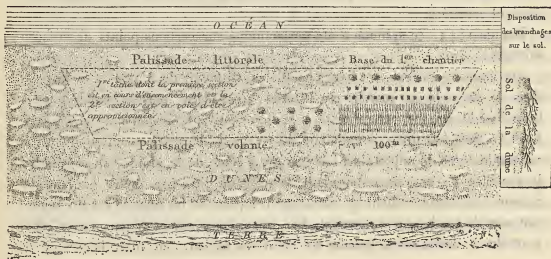 OCÉAN
Palissade littorale
Base du 1er chantier
1re tâche dont la première section
est en cours d'ensemencement et la
2e section est en voie d'être
approvisionnée.
Palissade volante
100m
DUNES
TERRE
Disposition
des branchages
sur le sol.
Sol de la dune